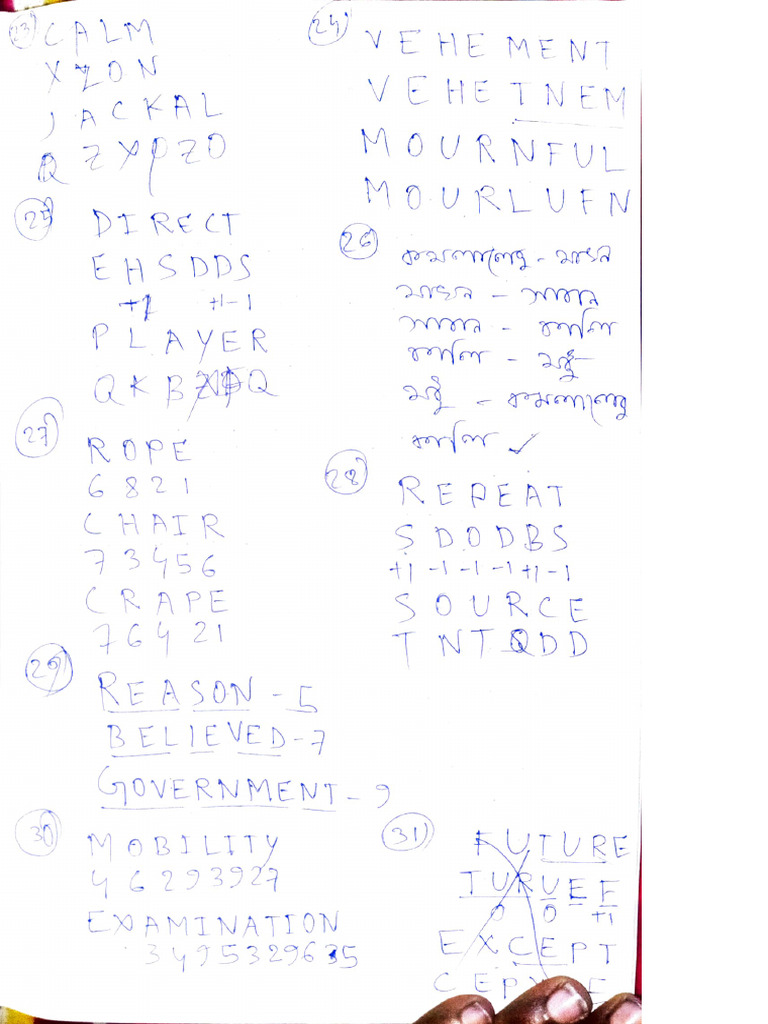 23) CALM
XZON
JACKAL
QZXPZO
24) VEHEMENT
VEHETNEM
MOURNFUL
MOURLUFN
25) DIRECT
EHSDDS
+1 +1-1
PLAYER
QKB
Q
26) কমলালেবু - মাখন
মাখন - সাবান
সাবান - কালি
কালি - মধু
মধু - কমলালেবু
কালি ✓
27) ROPE
6821
CHAIR
73456
CRAPE
76421
28) REPEAT
SDODBS
+1 -1 -1 -1 +1 -1
SOURCE
TNTQDD
29) REASON - 5
BELIEVED - 7
GOVERNMENT - 9
30) MOBILITY
46293927
EXAMINATION
31) FUTURE
TURUEF
0 0 +1
EXCEPT
CEP